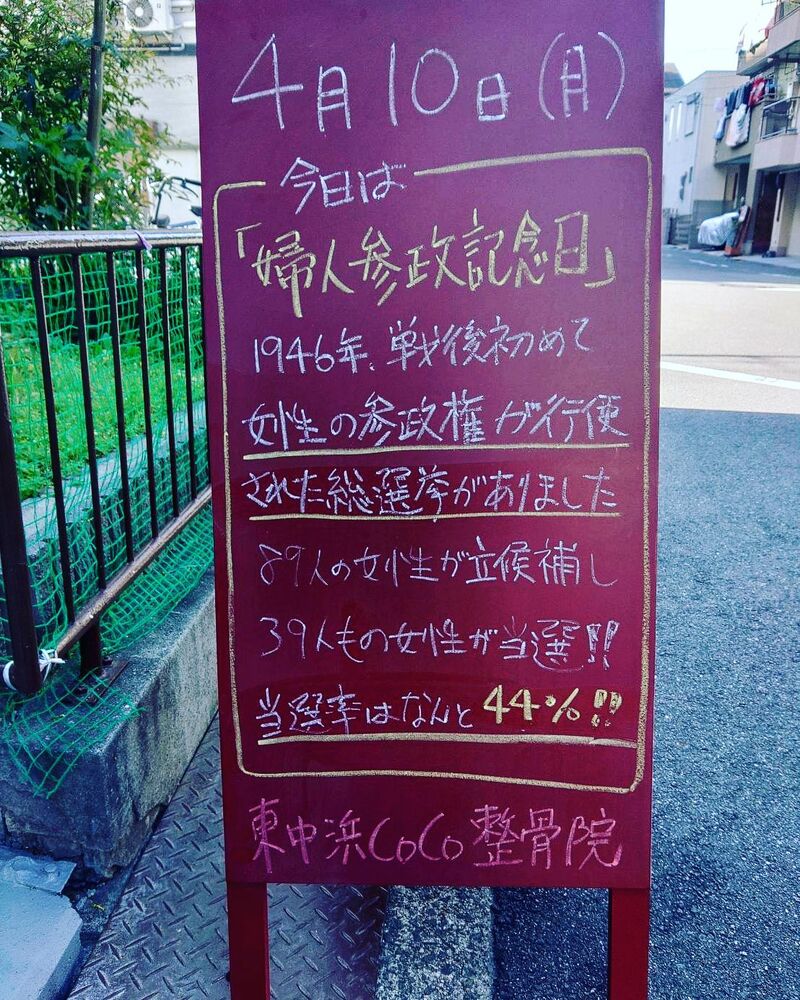 4月10日(月)
今日は
「婦人参政記念日」
1946年、戦後初めて
女性の参政権が行使
された総選挙がありました
89人の女性が立候補し
39人もの女性が当選!!
当選率はなんと44%!!
東中浜CoCo整骨院